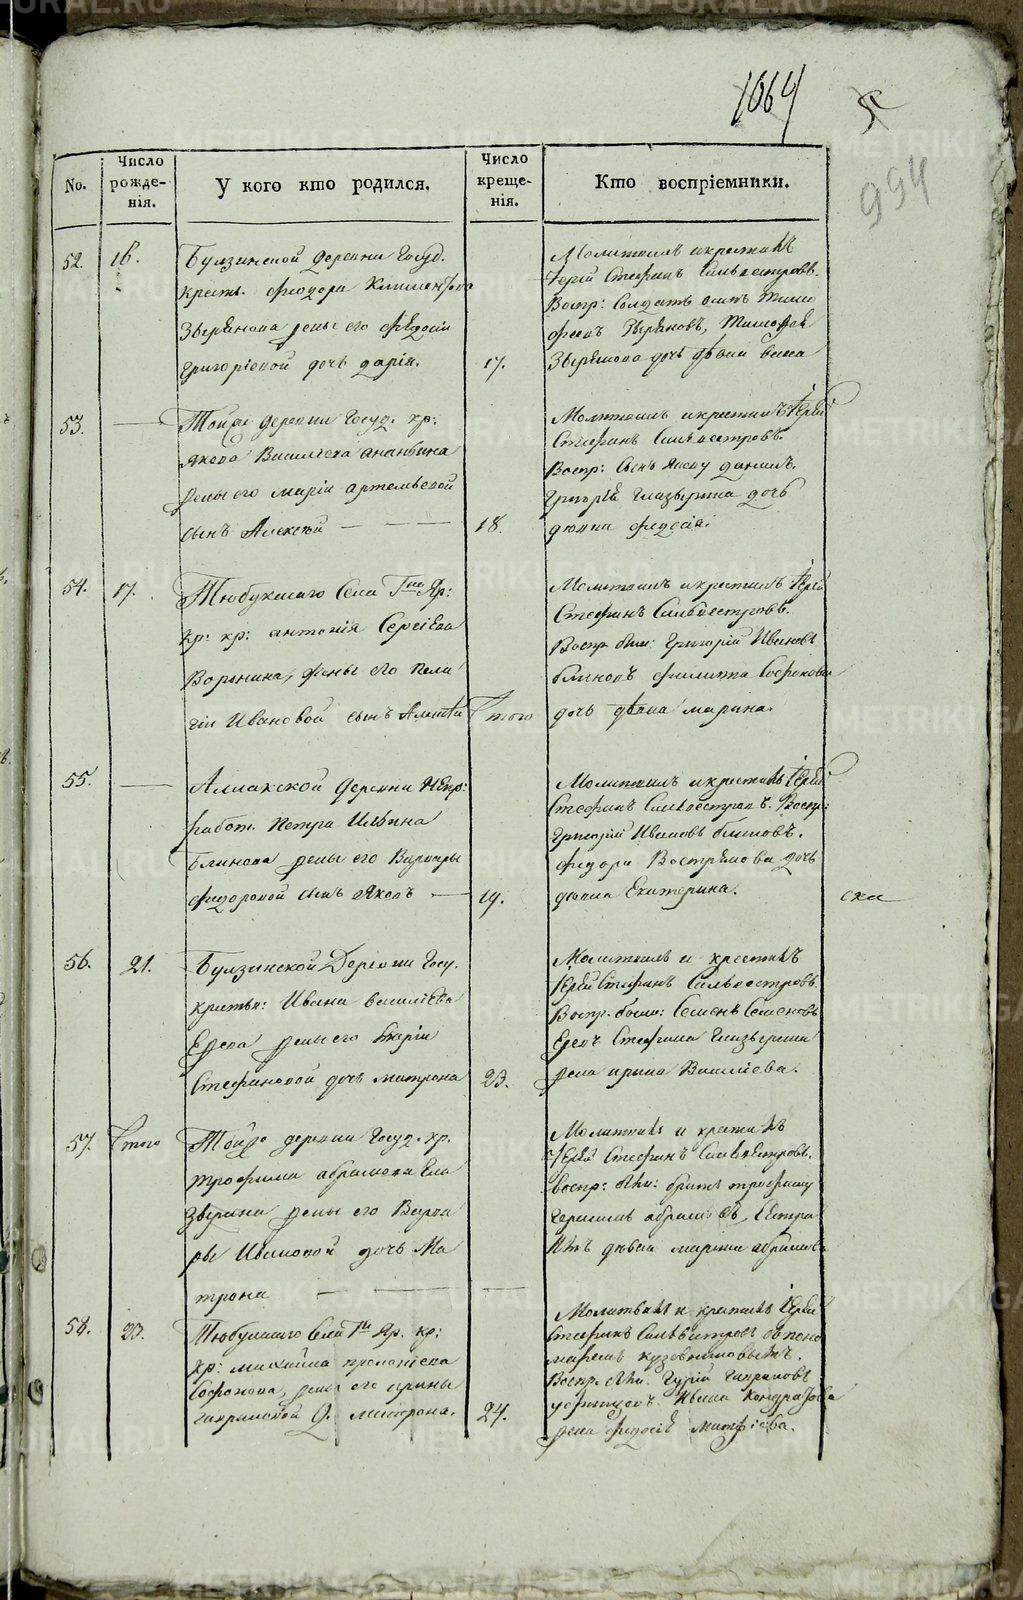 1064
994
No.
Число рожде-нія.
У кого кто родился.
Число креще-нія.
Кто воспріемники.
52. 16.
Булзинской деревни Госуд.
крест. Феодора Климентова
Зырянова жены его Феодосіи
Григорієвой дочь Дарія.
17.
Молитвилъ и крестилъ
Іерей Стефанъ Сильвестровъ.
Воспр: Солдатъ Тимо
фей Зыряновъ, Тимофея
Зырянова дочь дѣвица
53.
Той же деревни Госуд. кр:
Якова Васильева Ананьина
жены его Маріи Артемьевой
сынъ Алексѣй
18.
Молитвилъ и крестилъ Іерей
Стефанъ Сильвестровъ.
Воспр: сынъ Якову Данилъ.
Григорія Глазырина дочь
дѣвица Федосія
54. 17.
Тюбукскаго Села Гна Яр:
кр: кр: Антонія Сергіева
Воронина, жены его Пела
гіи Ивановой сынъ Алексѣй
Того
Молитвилъ и крестилъ Іерей
Стефанъ Сильвестровъ.
Воспр. были: Григорій Ивановъ
Блиновъ Филиппа Софонова
дочь дѣвица Марина.
55.
Аллакской деревни Непр:
работ. Петра Ильина
Блинова жены его Варвары
Федоровой сынъ Яковъ
19.
Молитвилъ и крестилъ Іерей
Стефанъ Сильвестровъ. Воспр:
Григорій Ивановъ Блиновъ.
Федора Вострякова дочь
дѣвица Екатерина.
56. 21.
Булзинской Деревни Госу.
крестья: Ивана Василіева
жены его Маріи
Стефановой дочь Матрона
23.
Молитвилъ и крестилъ
Іерей Стефанъ Сильвестровъ.
Воспр. были: Семенъ Семеновъ
Стефана Глазырина
жена Ирина Василіева.
57. Того
Той же деревни Госуд. кр.
Трофима Абрамова
Зырянова жены его Варва
ры Ивановой дочь Ма
трона
Молитвилъ и крестилъ
Іерей Стефанъ Сильвестровъ.
Воспр: были: братъ Трофиму
Герасимъ Абрамовъ, сестра
дѣвица Марина Абрамова
58. 23.
Тюбукскаго Села Гна Яр. кр:
кр: Михайла
Софонова, жены его Ирины
Гавриловой д. Матрона.
24.
Молитвилъ и крестилъ Іерей
Стефанъ Сильвестровъ съ поно
маремъ Кузовниковымъ.
Воспр. были: Гурій Гавриловъ
Ивана Кондратова
жена Федосія Матфіева.
METRIKI.GASO-URAL.RU